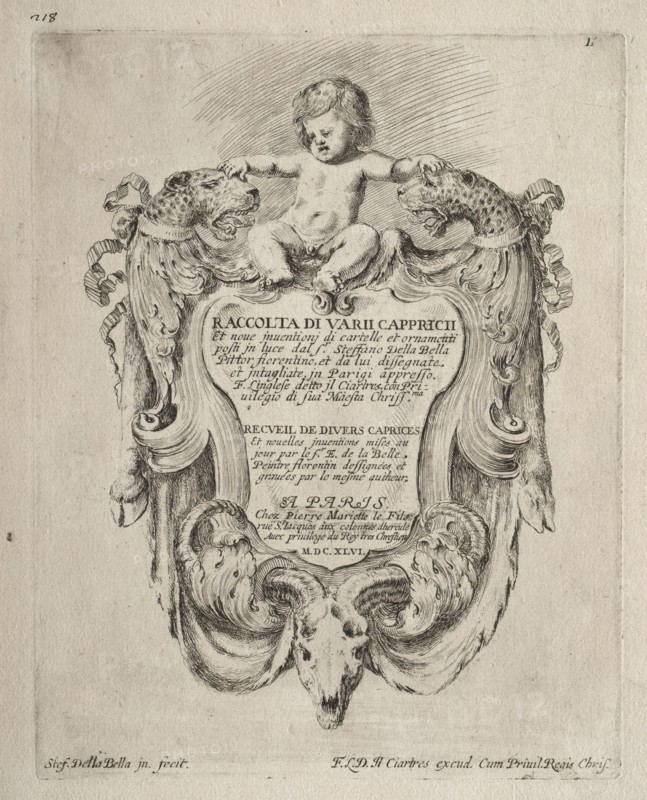 218
1.
RACCOLTA DI VARII CAPPRICII
Et noue jnuentionj di cartelle et ornamenti
posti jn luce dal s.r Steffano Della Bella
Pittor fiorentino, et da lui dissegnate
et jntagliate, jn Parigi appresso.
F. L'inglese detto jl Ciartres, con Pri-
uilegio di sua Maesta Chriss.ma
RECVEIL DE DIVERS CAPRICES
Et nouelles jnuentions mises au
jour par le s.r E. de la Belle.
Peintre florentin dessignées et
grauées par le mesme autheur,
A PARIS
Chez Pierre Mariette le Fils
rue S. Iacques aux colonnes d'hercule
Auec priuilege du Roy tres Chrestien
M. DC. XLVI.
Stef. Della Bella jn. fecit.
F. L. D. Il Ciartres excud. Cum Priuil. Regis Chris.